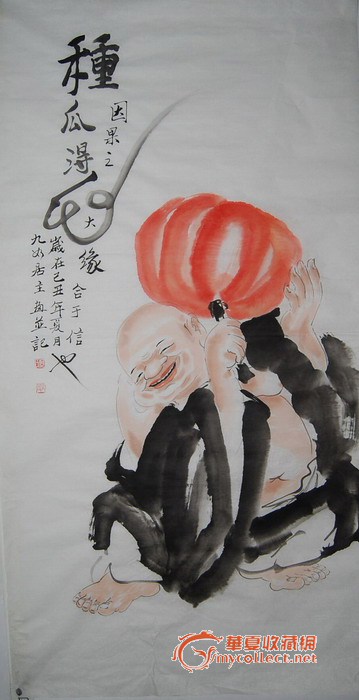 種瓜得瓜
因果之大缘合于信也
歲在己丑年夏月
九如居主畫並記
華夏收藏網
mycollect.net